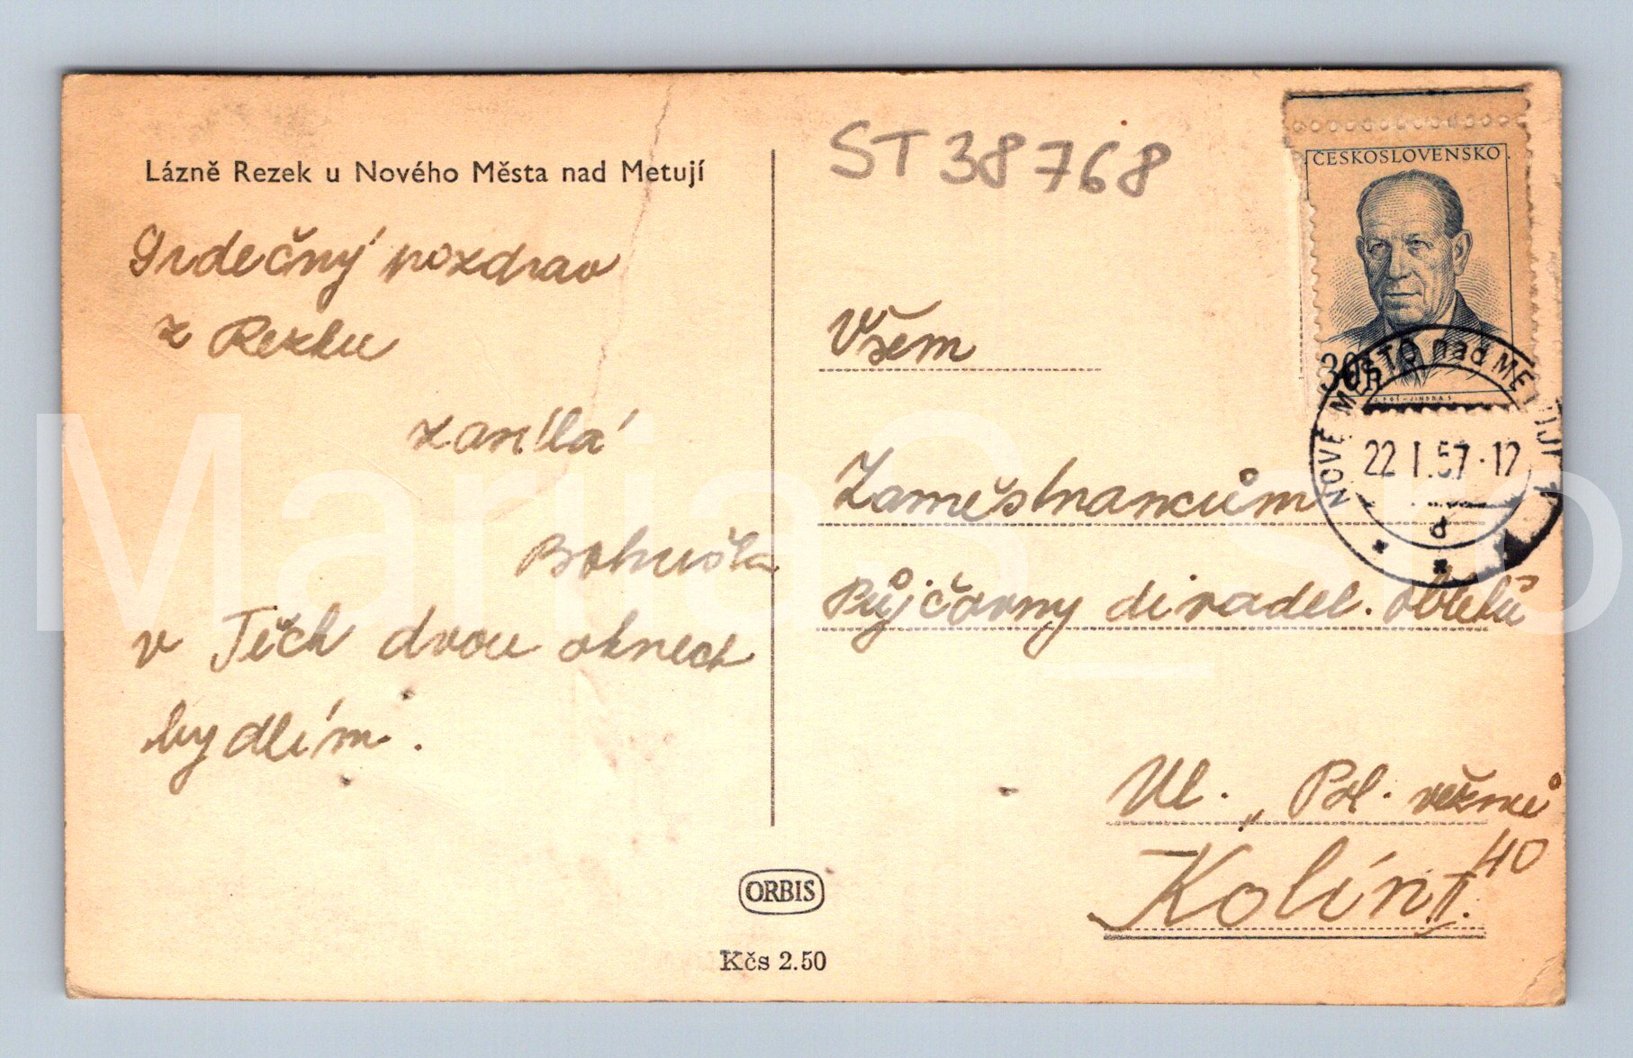 Lázně Rezek u Nového Města nad Metují
Srdečný pozdrav
z Rezku
zasílá
Bohuška
v Těch dvou oknech
bydlím.
ST 38768
Všem
Zaměstnancům
Půjčovny divadel. obleků
Ul. „Pol. vězňů
40
Kolín II.
ČESKOSLOVENSKO
30h
NOVÉ MĚSTO nad METUJÍ
22 I.57-12
d
ORBIS
Kčs 2.50